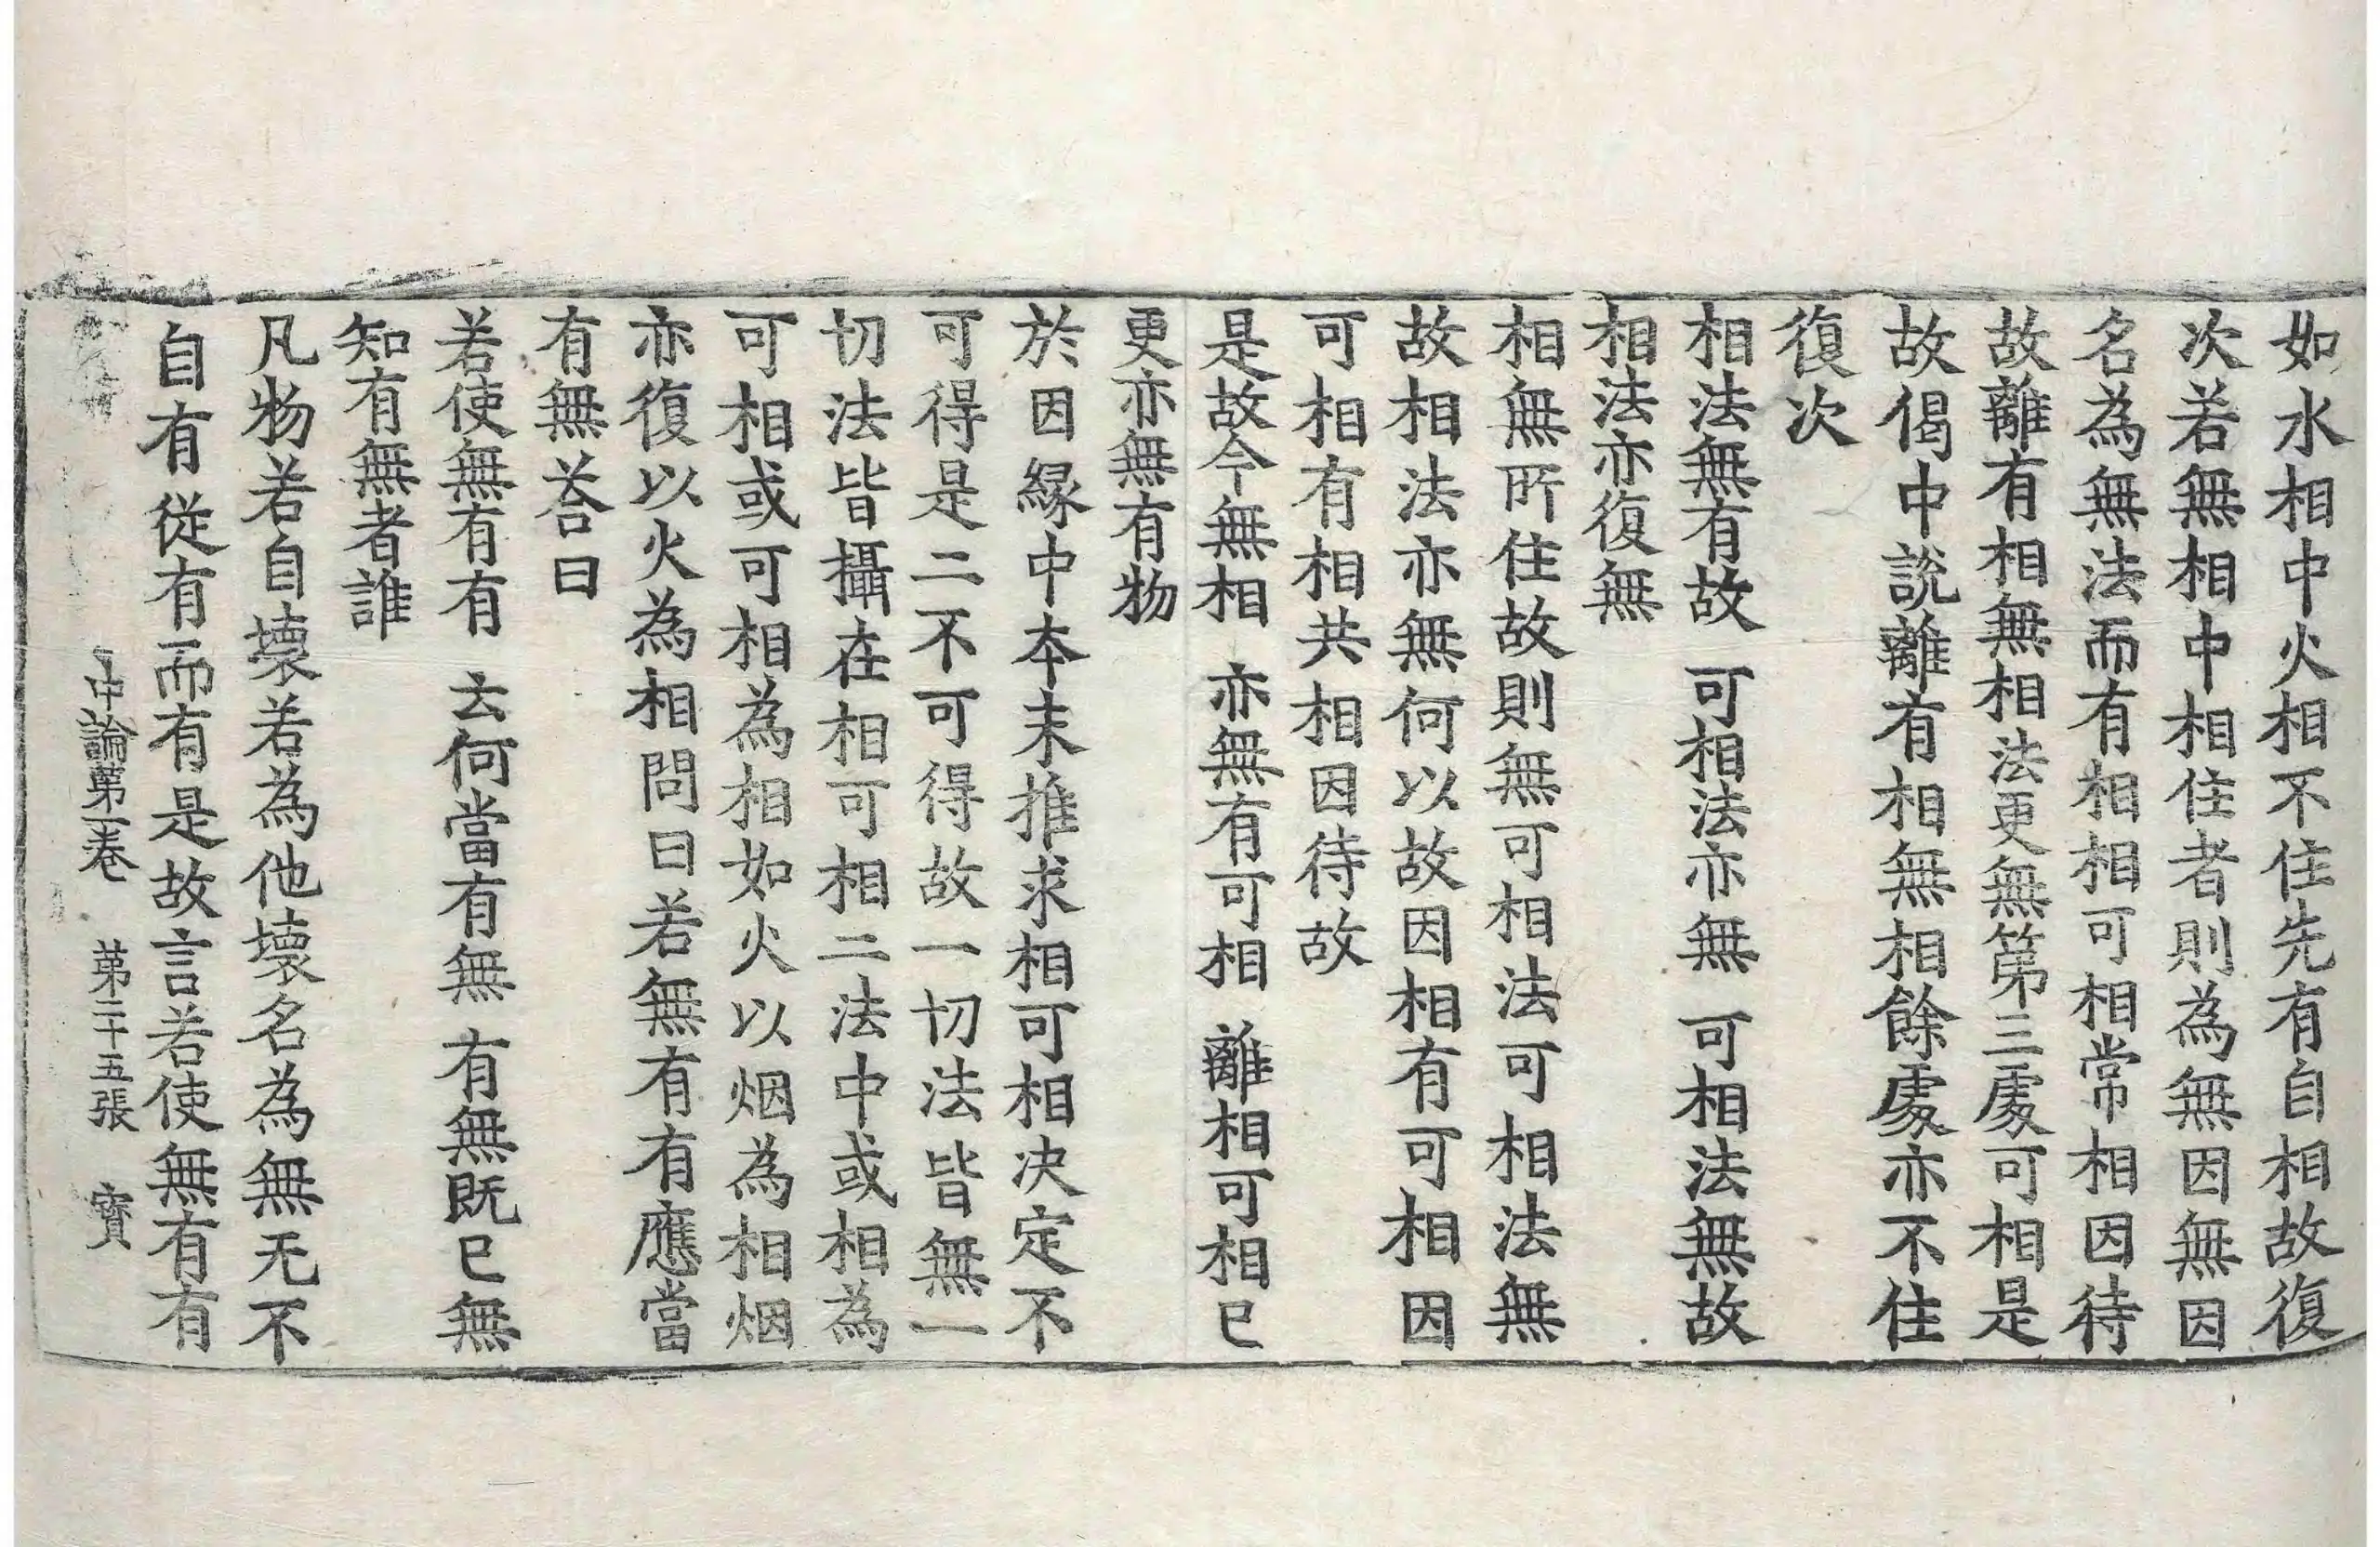 如水相中火相不住先有自相故復
次若無相中相住者則為無因無因
名為無法而有相相可相常相因待
故離有相無相法更無第三處可相是
故偈中說離有相無相餘處亦不住
復次
相法無有故 可相法亦無 可相法無故
相法亦復無
相無所住故則無可相法可相法無
故相法亦無何以故因相有可相因
可相有相共相因待故
是故今無相 亦無有可相 離相可相已
更亦無有物
於因緣中本末推求相可相决定不
可得是二不可得故一切法皆無一
切法皆攝在相可相二法中或相為
可相或可相為相如火以烟為相烟
亦復以火為相問曰若無有有應當
有無荅曰
若使無有有 云何當有無 有無既已無
知有無者誰
凡物若自壞若為他壞名為無无不
自有從有而有是故言若使無有有
中論第一卷 第二十五張 寶